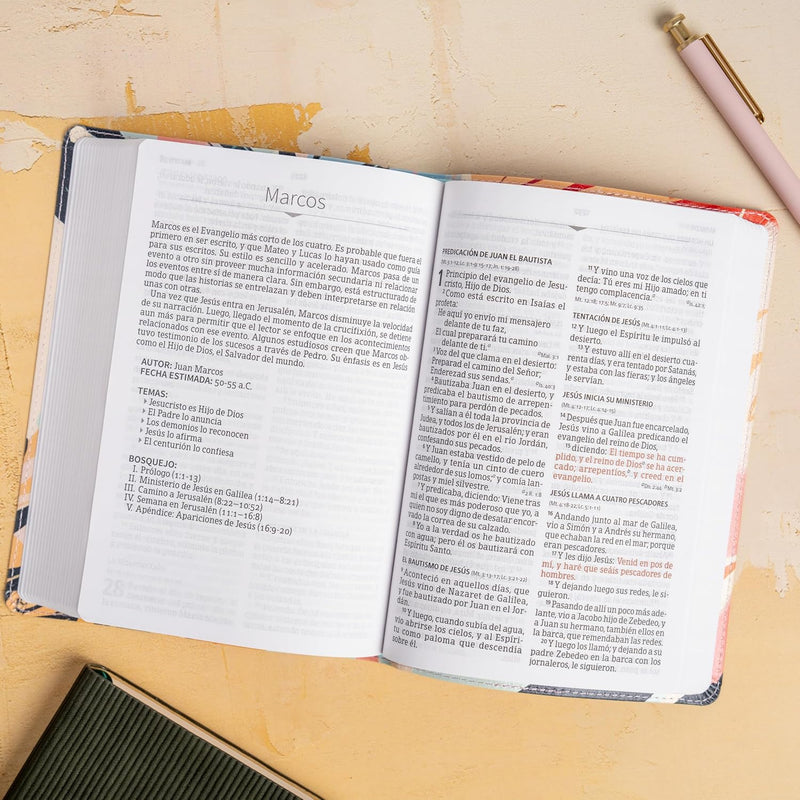 Marcos
Marcos es el Evangelio más corto de los cuatro. Es probable que fuera el
primero en ser escrito, y que Mateo y Lucas lo hayan usado como guía
para sus escritos. Su estilo es sencillo y acelerado. Marcos pasa de un
evento a otro sin proveer mucha información secundaria ni relacionar
los eventos entre sí de manera clara. Sin embargo, está estructurado de
modo que las historias se entrelazan y deben interpretarse en relación
unas con otras.
Una vez que Jesús entra en Jerusalén, Marcos disminuye la velocidad
de su narración. Luego, llegado el momento de la crucifixión, se detiene
aun más para permitir que el lector se enfoque en los acontecimientos
relacionados con ese evento. Algunos estudiosos creen que Marcos ob-
tuvo testimonio de los sucesos a través de Pedro. Su énfasis es en Jesús
como el Hijo de Dios, el Salvador del mundo.
AUTOR: Juan Marcos
FECHA ESTIMADA: 50-55 a.C.
TEMAS:
Jesucristo es Hijo de Dios
El Padre lo anuncia
Los demonios lo reconocen
Jesús lo afirma
El centurión lo confiesa
BOSQUEJO:
I. Prólogo (1:1-13)
II. Ministerio de Jesús en Galilea (1:14–8:21)
III. Camino a Jerusalén (8:22–10:52)
IV. Semana en Jerusalén (11:1–16:8)
V. Apéndice: Apariciones de Jesús (16:9-20)
28
PREDICACIÓN DE JUAN EL BAUTISTA
(Mt. 3:1-12; Lc. 3:1-9,15-17; Jn. 1:19-28)
1 Principio del evangelio de Jesu-
cristo, Hijo de Dios.
2 Como está escrito en Isaías el
profeta:
He aquí yo envío mi mensajero
delante de tu faz,
El cual preparará tu camino
delante de ti.
Mal. 3:1
3 Voz del que clama en el desierto:
Preparad el camino del Señor;
Enderezad sus sendas.
Is. 40:3
4 Bautizaba Juan en el desierto, y
predicaba el bautismo de arrepen-
timiento para perdón de pecados.
5 Y salían a él toda la provincia de
Judea, y todos los de Jerusalén; y eran
bautizados por él en el río Jordán,
confesando sus pecados.
6 Y Juan estaba vestido de pelo de
camello, y tenía un cinto de cuero
alrededor de sus lomos; y comía lan-
gostas y miel silvestre.
2 R. 1:8
7 Y predicaba, diciendo: Viene tras
mí el que es más poderoso que yo, a
quien no soy digno de desatar encor-
vado la correa de su calzado.
8 Yo a la verdad os he bautizado
con agua; pero él os bautizará con
Espíritu Santo.
EL BAUTISMO DE JESÚS (Mt. 3:13-17; Lc. 3:21-22)
9 Aconteció en aquellos días, que
Jesús vino de Nazaret de Galilea,
y fue bautizado por Juan en el Jor-
dán.
10 Y luego, cuando subía del agua,
vio abrirse los cielos, y al Espíri-
tu como paloma que descendía
sobre él.
11 Y vino una voz de los cielos que
decía: Tú eres mi Hijo amado; en ti
tengo complacencia.
Is. 42:1;
Mt. 12:18; 17:5; Mr. 9:7; Lc. 9:35
TENTACIÓN DE JESÚS (Mt. 4:1-11; Lc. 4:1-13)
12 Y luego el Espíritu le impulsó al
desierto.
13 Y estuvo allí en el desierto cua-
renta días, y era tentado por Satanás,
y estaba con las fieras; y los ángeles
le servían.
JESÚS INICIA SU MINISTERIO
(Mt. 4:12-17; Lc. 4:14-15)
14 Después que Juan fue encarcelado,
Jesús vino a Galilea predicando el
evangelio del reino de Dios,
15 diciendo: El tiempo se ha cum-
plido, y el reino de Dios se ha acer-
cado; arrepentíos, y creed en el
evangelio.
Dn. 2:44 Mt. 3:2
JESÚS LLAMA A CUATRO PESCADORES
(Mt. 4:18-22; Lc. 5:1-11)
16 Andando junto al mar de Galilea,
vio a Simón y a Andrés su hermano,
que echaban la red en el mar; porque
eran pescadores.
17 Y les dijo Jesús: Venid en pos de
mí, y haré que seáis pescadores de
hombres.
18 Y dejando luego sus redes, le si-
guieron.
19 Pasando de allí un poco más ade-
lante, vio a Jacobo hijo de Zebedeo, y
a Juan su hermano, también ellos en
la barca, que remendaban las redes.
20 Y luego los llamó; y dejando a su
padre Zebedeo en la barca con los
jornaleros, le siguieron.